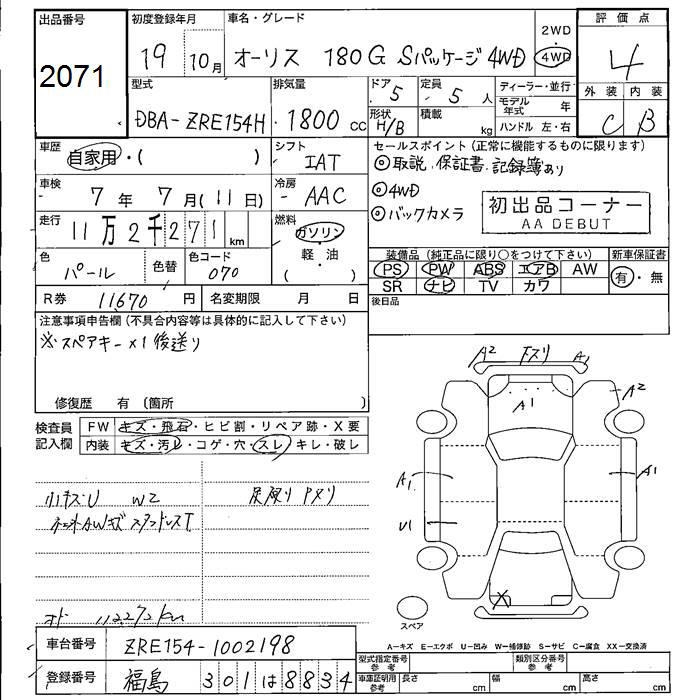 出品番号
2071
初度登録年月
19 10月
車名・グレード
オーリス 180G Sパッケージ 4WD
2WD
4WD
評価点
4
外装 内装
C B
型式
DBA-ZRE154H
排気量
1800 cc
ドア
5
形状
H/B
定員
5 人
積載
kg
ディーラー・並行
モデル年式 年
ハンドル 左・右
車歴
自家用・( )
シフト
IAT
車検
7 年 7 月 (11 日)
冷房
AAC
走行
11万2千271 km
燃料
ガソリン
軽・油
( )
色
パール
色替
色コード
070
R券 11,670 円
名変期限 月 日
セールスポイント (正常に機能するものに限ります)
◎取説、保証書、記録簿あり
◎4WD
◎バックカメラ
初出品コーナー
AA DEBUT
装備品 (純正品に限り○をつけて下さい)
PS PW ABS エアB AW
SR ナビ TV カワ
新車保証書
有・無
後日品
注意事項申告欄 (不具合内容等は具体的に記入して下さい)
※スペアキー×1後送り
修復歴 有 (箇所 )
検査員記入欄
FW キズ・飛石・ヒビ割・リペア跡・X要
内装 キズ・汚レ・コゲ・穴・スレ・キレ・破レ
小キズU W2
足廻り Pメリ
オド 112272km
A2 A1
A1 A2
A1 A1
U1
X
スペア
車台番号 ZRE154-1002198
登録番号 福島 301は8834
A-キズ E-エクボ U-凹み W-補修跡 S-サビ C-腐食 XX-交換済
型式指定番号 参考
類別区分番号 参考
車庫証明用 参考
長さ cm 幅 cm 高さ cm